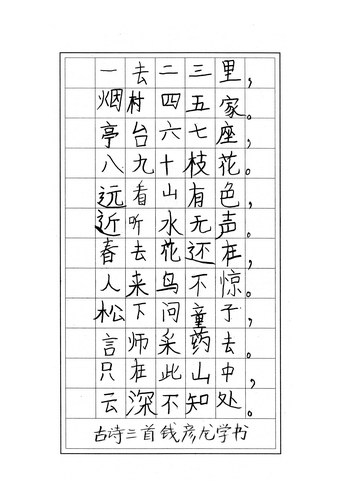 一去二三里，
烟村四五家。
亭台六七座，
八九十枝花。
远看山有色，
近听水无声。
春去花还在，
人来鸟不惊。
松下问童子，
言师采药去。
只在此山中，
云深不知处。
古诗三首钱彦龙学书